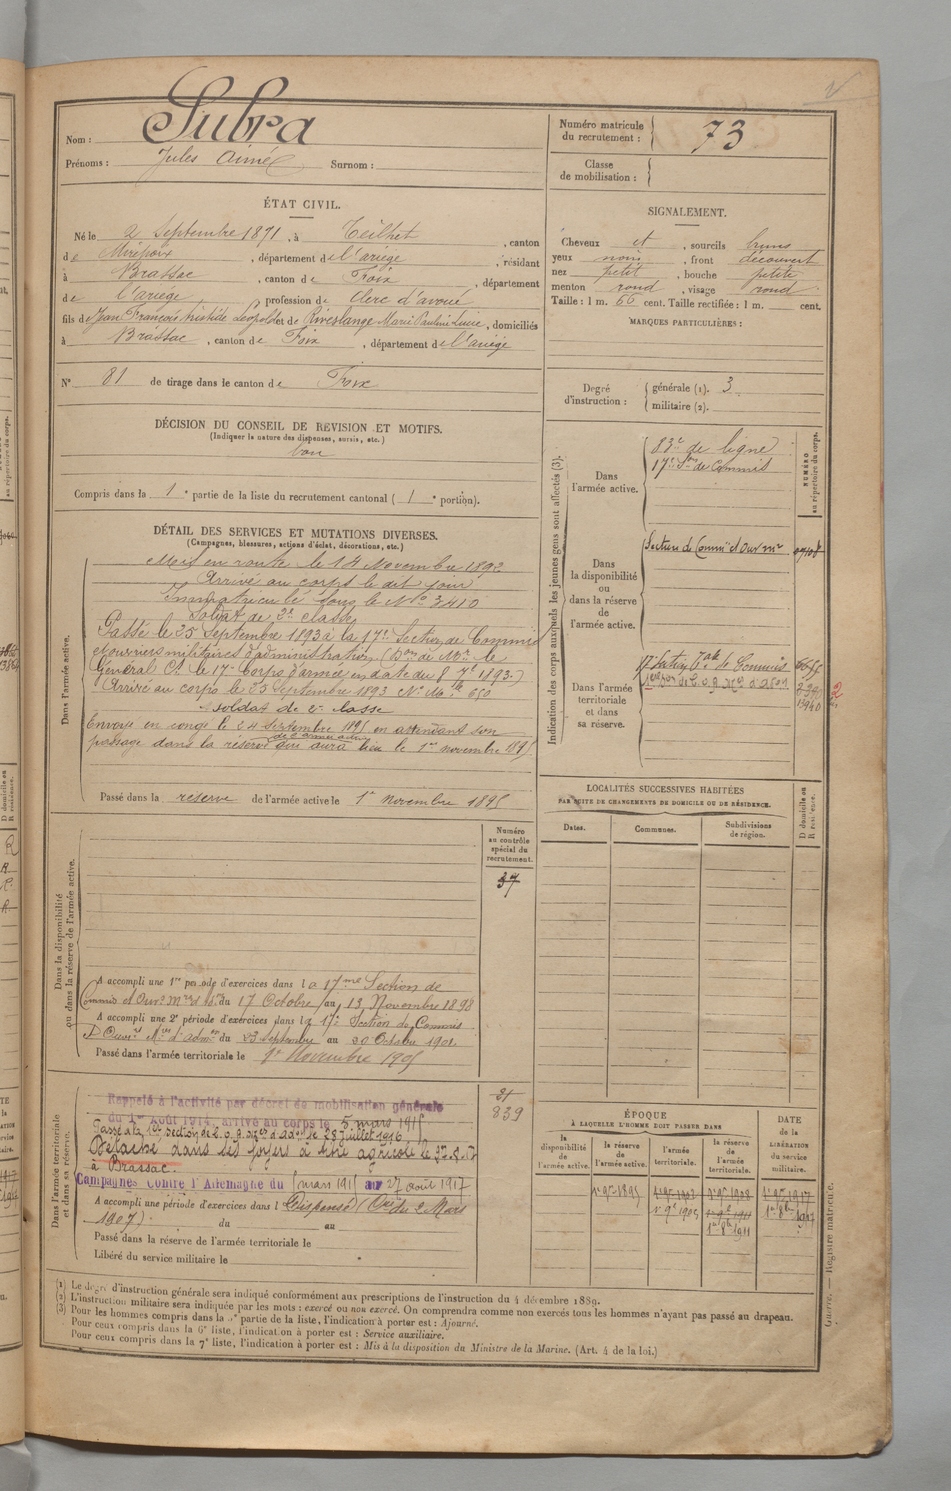 Nom : Subra
Prénoms : Jules Aimé Surnom :
Numéro matricule du recrutement : 73
Classe de mobilisation :
ÉTAT CIVIL.
Né le 2 Septembre 1871, à Teilhet, canton
de Mirepoix, département de l'ariège, résidant
à Brassac, canton de Foix, département
de l'ariège, profession de clerc d'avoué
fils de Jean François Aristide Léopold et de Riveslange Marie Pauline Lucie, domiciliés
à Brassac, canton de Foix, département de l'ariège
N° 81 de tirage dans le canton de Foix
SIGNALEMENT.
Cheveux et, sourcils bruns
yeux noirs, front découvert
nez petit, bouche petite
menton rond, visage rond
Taille : 1 m. 66 cent. Taille rectifiée : 1 m. cent.
MARQUES PARTICULIÈRES :
Degré d'instruction : générale (1). 3
militaire (2).
DÉCISION DU CONSEIL DE REVISION ET MOTIFS.
(Indiquer la nature des dispenses, sursis, etc.)
bon
Compris dans la 1e partie de la liste du recrutement cantonal (1e portion).
DÉTAIL DES SERVICES ET MUTATIONS DIVERSES.
(Campagnes, blessures, actions d'éclat, décorations, etc.)
Dans l'armée active.
Mis en route le 14 Novembre 1892
Arrivé au corps le dit jour
Immatriculé sous le N° 3410
Soldat de 2e classe
Passé le 25 Septembre 1893 à la 17e Section de Commis
et ouvriers militaires d'administration (Don de Mr. le
Général Ct. le 17e Corps d'armée en date du 8 7bre 1893.)
Arrivé au corps le 25 Septembre 1893 N° Mle 650
Soldat de 2e classe
Envoyé en congé le 24 Septembre 1895 en attendant son
passage dans la réserve de l'armée active qui aura lieu le 1er novembre 1895
Passé dans la réserve de l'armée active le 1er novembre 1895
Indication des corps auxquels les jeunes gens sont affectés (3).
NUMÉRO au répertoire du corps.
Dans l'armée active.
83e de ligne
17e Son de Commis
Dans la disponibilité ou dans la réserve de l'armée active.
Section de Commis et Ouv. mre
Dans l'armée territoriale et dans sa réserve.
17e Section Tale de Commis
LOCALITÉS SUCCESSIVES HABITÉES
PAR SUITE DE CHANGEMENTS DE DOMICILE OU DE RÉSIDENCE.
Dates. Communes. Subdivisions de région. D domicile ou R résidence.
Dans la disponibilité ou dans la réserve de l'armée active.
Numéro au contrôle spécial du recrutement.
37
A accompli une 1re période d'exercices dans la 17me Section de
Commis et Ouvrs Mres du 17 Octobre au 13 Novembre 1898
A accompli une 2e période d'exercices dans la 17e Section de Commis
du 23 Septembre au 20 Octobre 1901
Passé dans l'armée territoriale le 1er Novembre 1905
Dans l'armée territoriale et dans sa réserve.
839
Rappelé à l'activité par décret de mobilisation générale
du 1er Août 1914, arrivé au corps le 5 mars 1915
Passé à la 1ère Section de C.O.A. le 28 juillet 1916
Détaché dans ses foyers à titre agricole
à Brassac.
Campagnes contre l'Allemagne du mars 1915 au 27 août 1917
A accompli une période d'exercices dans l Dispensé (Ove du 2 Mars
1907) du au
Passé dans la réserve de l'armée territoriale le
Libéré du service militaire le
ÉPOQUE
À LAQUELLE L'HOMME DOIT PASSER DANS
la disponibilité de l'armée active. la réserve de l'armée active. l'armée territoriale. la réserve de l'armée territoriale. DATE de la LIBÉRATION du service militaire.
1er 9bre 1895
1er 9e 1905
(1) Le degré d'instruction générale sera indiqué conformément aux prescriptions de l'instruction du 4 décembre 1889.
(2) L'instruction militaire sera indiquée par les mots : exercé ou non exercé. On comprendra comme non exercés tous les hommes n'ayant pas passé au drapeau.
(3) Pour les hommes compris dans la 5e partie de la liste, l'indication à porter est : Ajourné.
Pour ceux compris dans la 6e liste, l'indication à porter est : Service auxiliaire.
Pour ceux compris dans la 7e liste, l'indication à porter est : Mis à la disposition du Ministre de la Marine. (Art. 4 de la loi.)
Guerre. — Registre matricule.